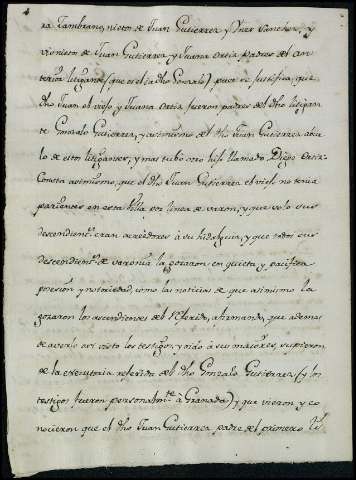 ra Zambrano, nieto de Juan Gutierrez y Ynes Sanchez, y
viznieto de Juan Gutierrez y Juana Ortiz padres del an-
terior litigante (que es el dho Gonzalo) pues se justifica, que
dho Juan el viejo y Juana Ortiz fueron padres del dho litigan-
te Gonzalo Gutierrez, y asimismo del dho Juan Gutierrez abue
lo de estos litigantes, y mas tubo otro hijo llamado Diego Ortiz.
Consta asimismo, que el dho Juan Gutierrez el viejo no tenia
parientes en esta Villa por linea de varon, y que solo sus
descendientes eran acreedores à su hidalguia, y que todos sus
descendientes de varonia la gozaron en quieta y pacifica
posesion y notoriedad, como las noticias de que asimismo la
gozaron los ascendientes del referido, afirmando, que ademas
de averlo asi visto los testigos, y oido à sus maiores, supieron
de la executoria referida del dho Gonzalo Gutierrez (y los
testigos fueron personalmte à Granada) y que vieron y co
nocieron que el dho Juan Gutierrez padre del primero